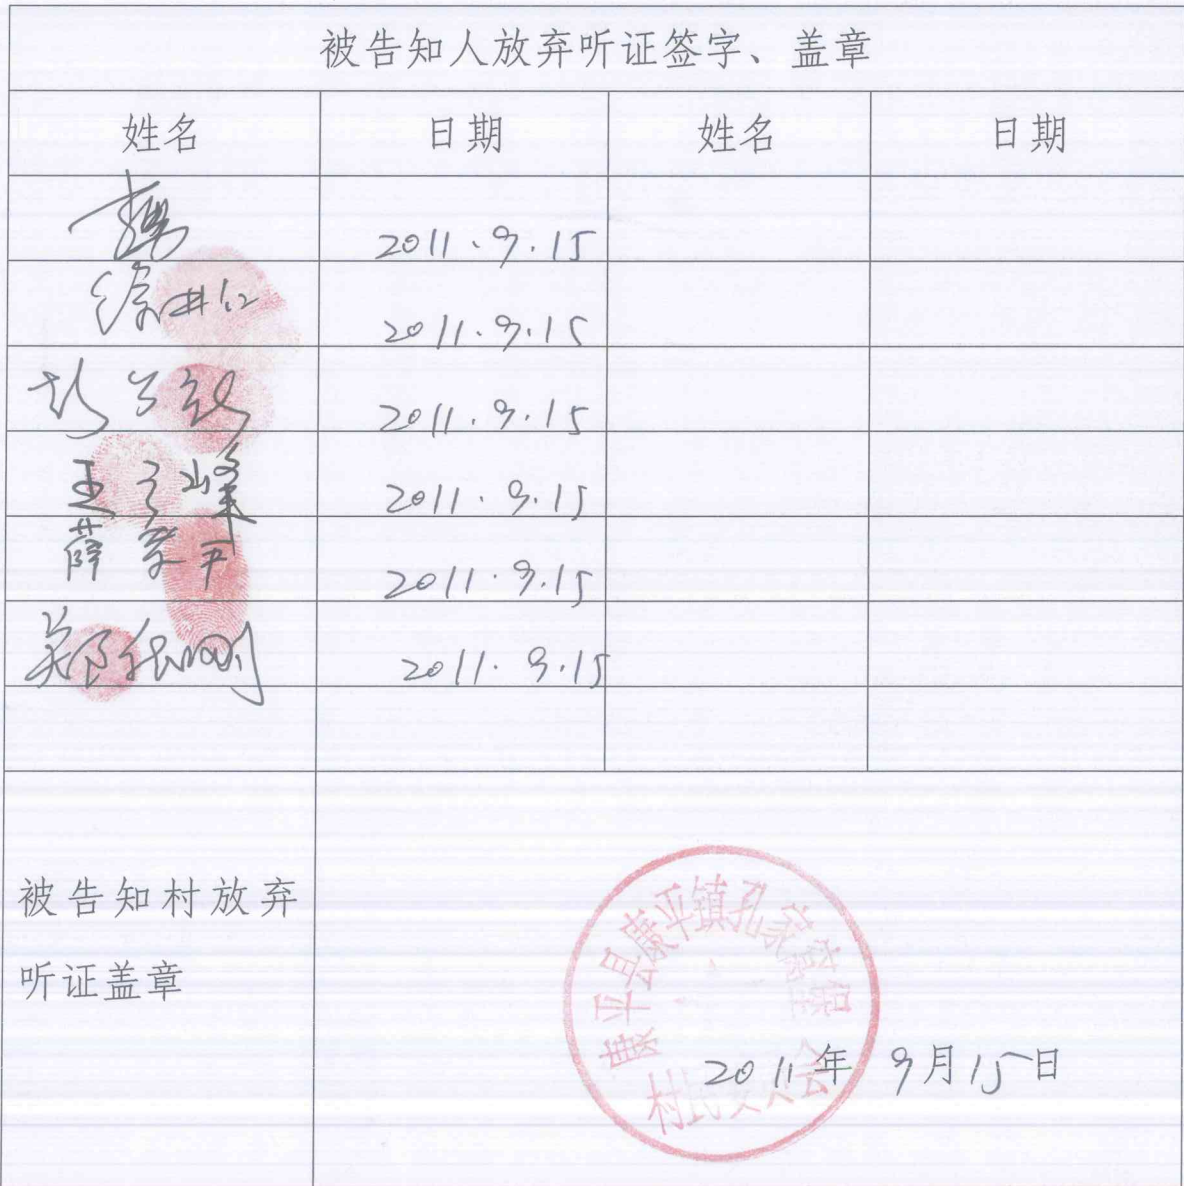 被告知人放弃听证签字、盖章
姓名 日期 姓名 日期
2011.9.15
2011.9.15
2011.9.15
王 峰 2011.9.15
薛 2011.9.15
郑 刚 2011.9.15
被告知村放弃
听证盖章
康平县康平镇孔家窝堡
村民委员会
2011年 9月15日